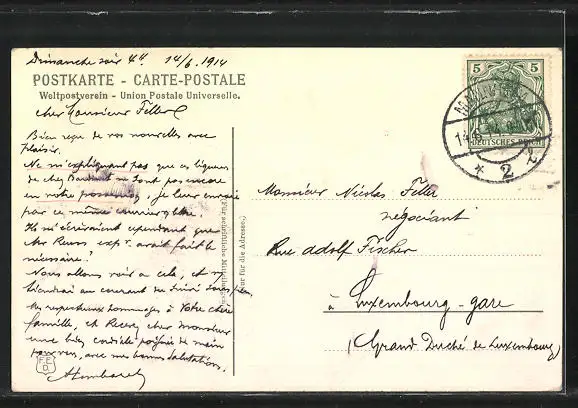 Dimanche soir 4h. 14/6.1914
POSTKARTE - CARTE-POSTALE
Weltpostverein - Union Postale Universelle.
cher Monsieur Feller
Bien reçu de vos nouvelles avec
plaisir.
Ne m'expliquant pas que ces liqueurs
de chez ne sont pas encore
en votre possession, je leur envoie
par ce même courrier
Ils m'écrivaient cependant que
Mr Reuss avait fait le
nécessaire!
Nous allons voir à cela, et
tiendrai au courant
Mes respectueux hommages à votre chère
famille, et Recevez cher monsieur
une bien cordiale poignée de main
pour vous, avec mes bonnes salutations.
5
DEUTSCHES REICH
2
Monsieur Nicolas Feller
négociant
Rue adolf Fischer
à Luxembourg-gare
(Grand Duché de Luxembourg)
(Für schriftliche Mitteilungen)
(Nur für die Adresse.)